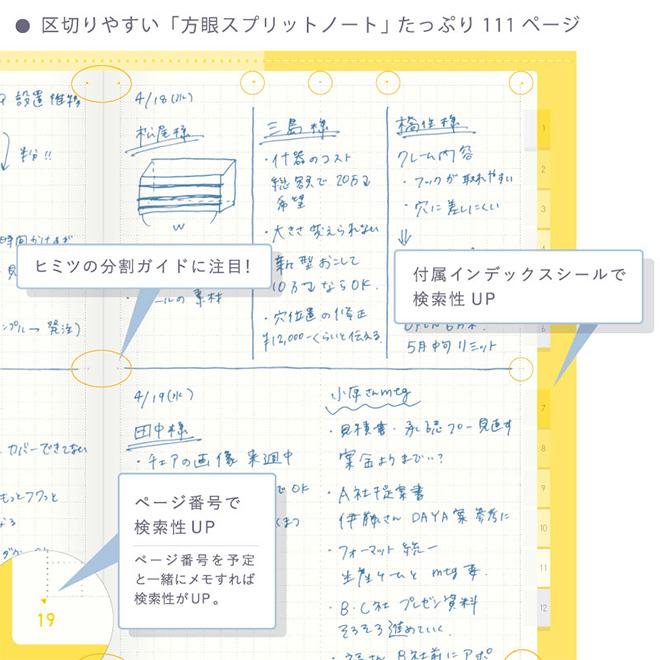 ● 区切りやすい「方眼スプリットノート」たっぷり 111 ページ
設置推移
半分!!
4/18(火)
松尾様
W
三島様
・什器のコスト
総額で 20万
希望
・大きさ 変えられない
新型おこして
10万ならOK.
・穴位置の修正
¥12,000-くらいと伝える
橋住様
クレーム内容
・フックが取れやすい
・穴に差しにくい
ヒミツの分割ガイドに注目!
付属インデックスシールで
検索性 UP
の素材
5月中旬 リミット
発注)
4/19(水)
田中様
・チェアの画像 来週中
でOK
カバーできてない
もっとフワっと
小原さんmtg
・見積書・承認フロー見直す
・A社提案書
伊藤さん DAYA案 参考に
・フォーマット統一
mtg 要.
・B・C社 プレゼン資料
そろそろ進めていく.
B社前にアポ
ページ番号で
検索性 UP
ページ番号を予定
と一緒にメモすれば
検索性がUP。
19
1
2
3
6
7
8
9
10
11
12